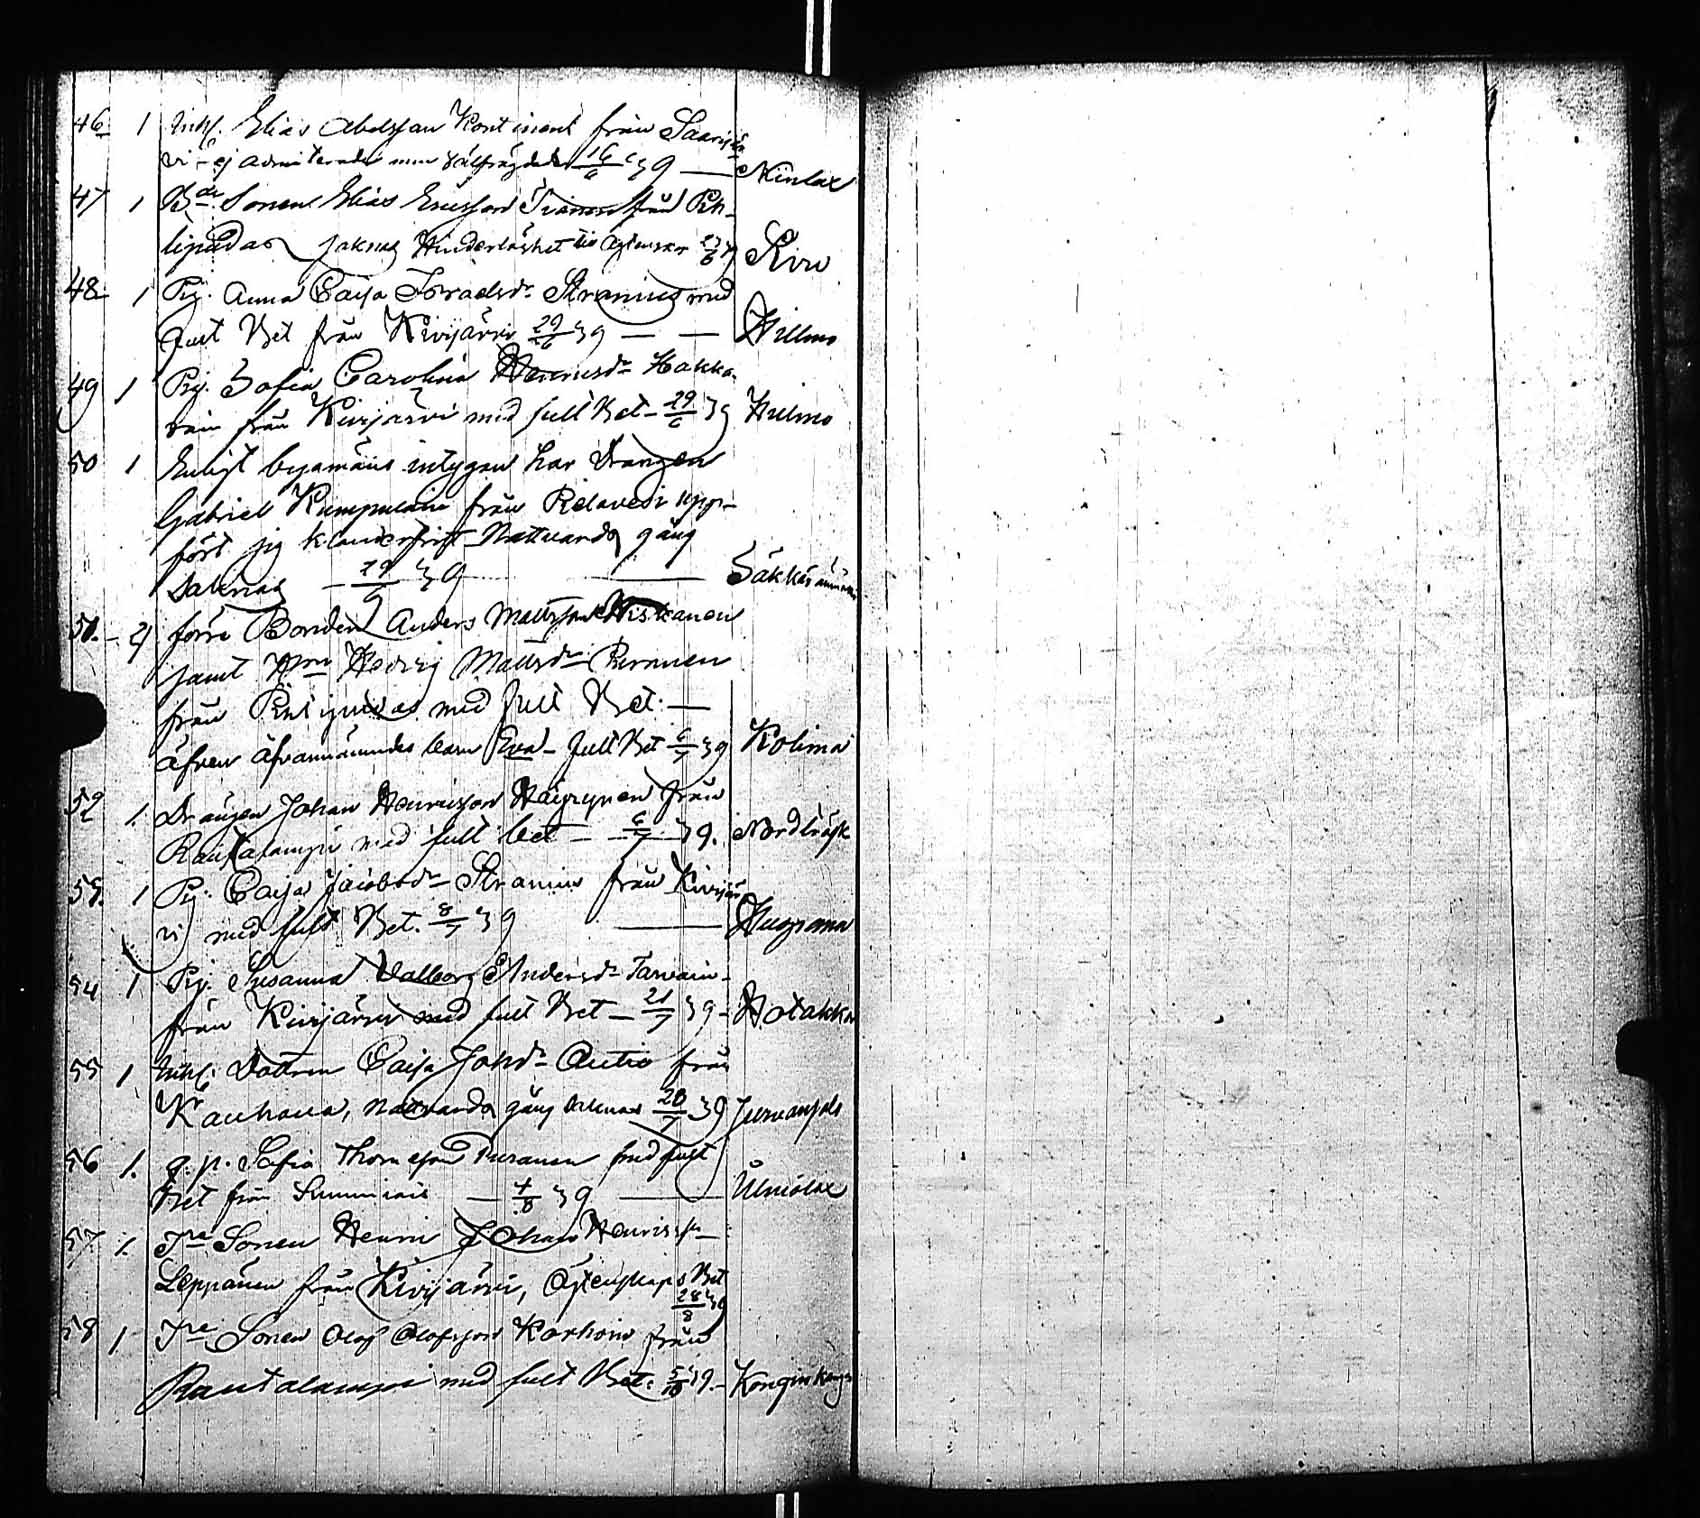 46 1 Inhs. Elias Abelsson Kontinent från Saarijär
vi, ej admitterades men välfrägdad 16/6 39 — Ninlax
47 1 Bde Sonen Elias Ericsson från Pih-
lipudas saknas Hinderlöshet till Ägtenskap 23/6 39 Kivu
48 1 Pig. Anna Caisa Isracsdr Stranius med
fult Bet från Kivijärvi 29/6 39 — — Willmo
49 1 Pig. Sofia Carolina Henricsdr Hakka-
rain från Kivijärvi med fult Bet — 29/6 39 Hulmo
50 1 Enligt byamäns intygan har Drängen
Gabriel Kumpulain från Pielavesi upp-
fört sig klanderfritt Nattvards gång
saknas — 29/6 39 — Säkkärämäki
51. — 2) förre Bonden Anders Mattsson Hiskanen
jämt Hon Hedvig Mattsdr Piranen
från Pihlipudas med fult Bet: —
äfven äfvannämndes barn Eva — fult Bet 6/7 39 Kolima
52 1. Drängen Johan Henricsson Häyrynen från
Rautalampi med fult bet — 6/7 39. Nordträsk
53. 1 Pig. Caisa Jacobsdr Stranius från Kivijär
vi med fult Bet. 8/7 39 — Huopana
54 1 Pig. Susanna Valborg Andersdr Tarvain-
från Kivijärvi med fult Bet — 21/7 39 — Hotakka
55 1 Inhs: Dottren Caisa Johsdr Autio från
Kauhava, Nattvards gång saknas 28/7 39
56 1. q. p. Sofia Thomasdr Puranen med fult
Bet från Sumiais — 4/8 39 — Ulmolax
57 1. Tre Sonen Henric Johan Henricss.
Leppänen från Kivijärvi, Ägtenskaps Bet
28/8 39
58 1 Tre Sonen Olof Olofsson Korhoin från
Rautalampi med fult Bet: 5/10 39. — Konginkangas